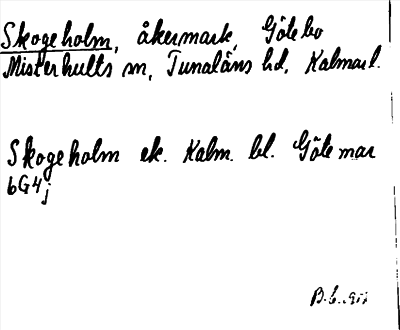 Skogeholm, åkermark, Götebo
Misterhults sn, Tunaläns hd, Kalmar l.
Skogeholm ek. Kalm. bl. Götemar
6G4j